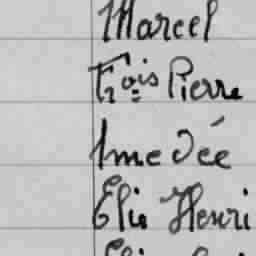 Marcel
Fçois Pierre
Amedée
Elie Henri